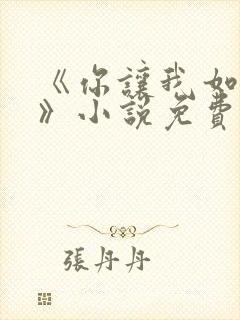 《你讓我如
》小說免費
張丹丹